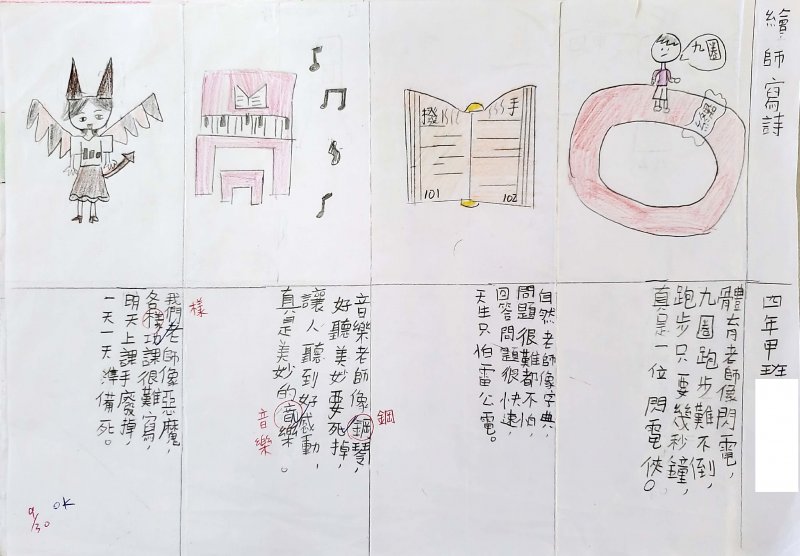 繪師寫詩
四年甲班
九圈
體育老師像閃電,
九圈跑步難不倒,
跑步只要幾秒鐘,
真是一位閃電俠。
手
撥
101
102
自然老師像字典,
問題很難都不怕,
回答問題很快速,
天生只怕雷公電。
鋼
音樂老師像鋼琴,
好聽美妙要死掉,
讓人聽到好感動,
真是美妙的音樂。
音樂
樣
我們老師像惡魔,
各樣功課很難寫,
明天上課手廢掉,
一天一天準備死。
OK
9/30